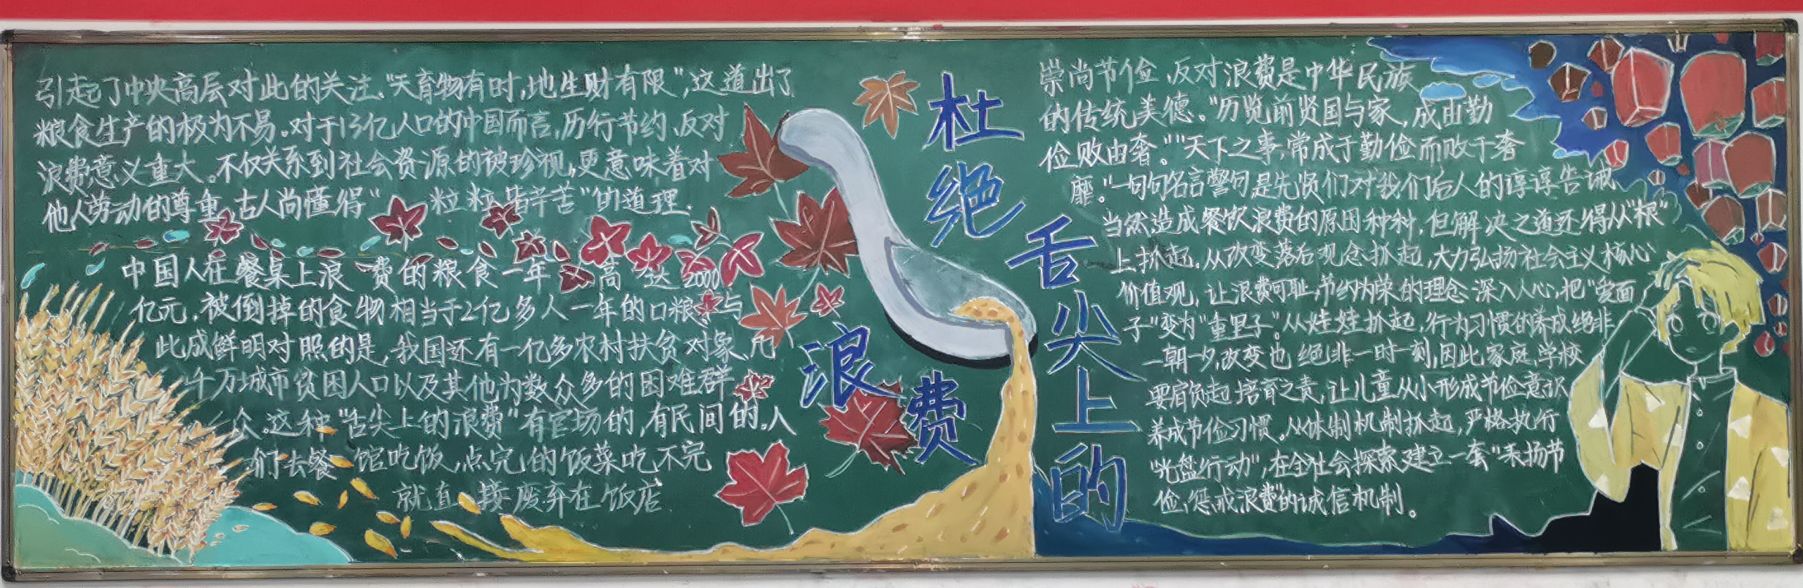 引起了中央高层对此的关注。"天育物有时,地生财有限",这道出了
粮食生产的极为不易。对于13亿人口的中国而言,历行节约,反对
浪费意义重大。不仅关系到社会资源的被珍视,更意味着对
他人劳动的尊重。古人尚懂得"粒粒皆辛苦"的道理.
中国人在餐桌上浪费的粮食一年高达2000
亿元,被倒掉的食物相当于2亿多人一年的口粮,与
此成鲜明对照的是,我国还有一亿多农村扶贫对象,几
千万城市贫困人口以及其他为数众多的困难群
众。这种"舌尖上的浪费"有官场的,有民间的.人
们去餐馆吃饭,点完的饭菜吃不完
就直接废弃在饭店
杜绝
舌尖上的
浪费
崇尚节俭,反对浪费是中华民族
的传统美德。"历览前贤国与家,成由勤
俭败由奢。""天下之事,常成于勤俭而败于奢
靡。"一句句名言警句是先贤们对我们后人的谆谆告诫
当然造成餐饮浪费的原因种种,但解决之道还得从"根"
上抓起.从改变落后观念抓起,大力弘扬社会主义核心
价值观,让浪费可耻,节约为荣的理念深入人心,把"爱面
子"变为"重里子"。从娃娃抓起,行为习惯的养成绝非
一朝一夕,改变也绝非一时一刻,因此,家庭,学校
要肩负起培育之责,让儿童从小形成节俭意识
养成节俭习惯。从体制机制抓起,严格执行
"光盘行动",在全社会探索建立一套"表扬节
俭,惩戒浪费"的诚信机制。